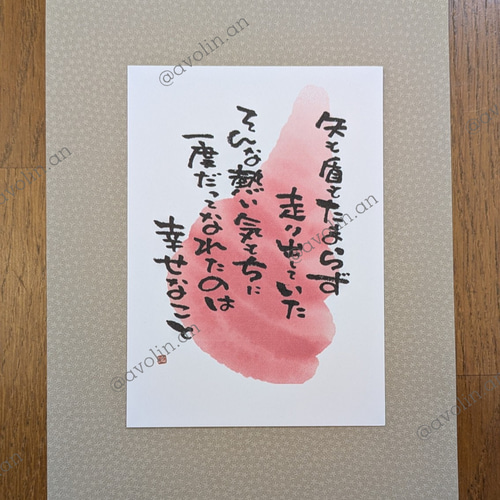 矢も盾もたまらず
走り出していた
そんな熱い気もちに
一度だってなれたのは
幸せなこと
@avolin.an
@avolin.an
@avolin.an
@avolin.an
@avolin.an
@avolin.an